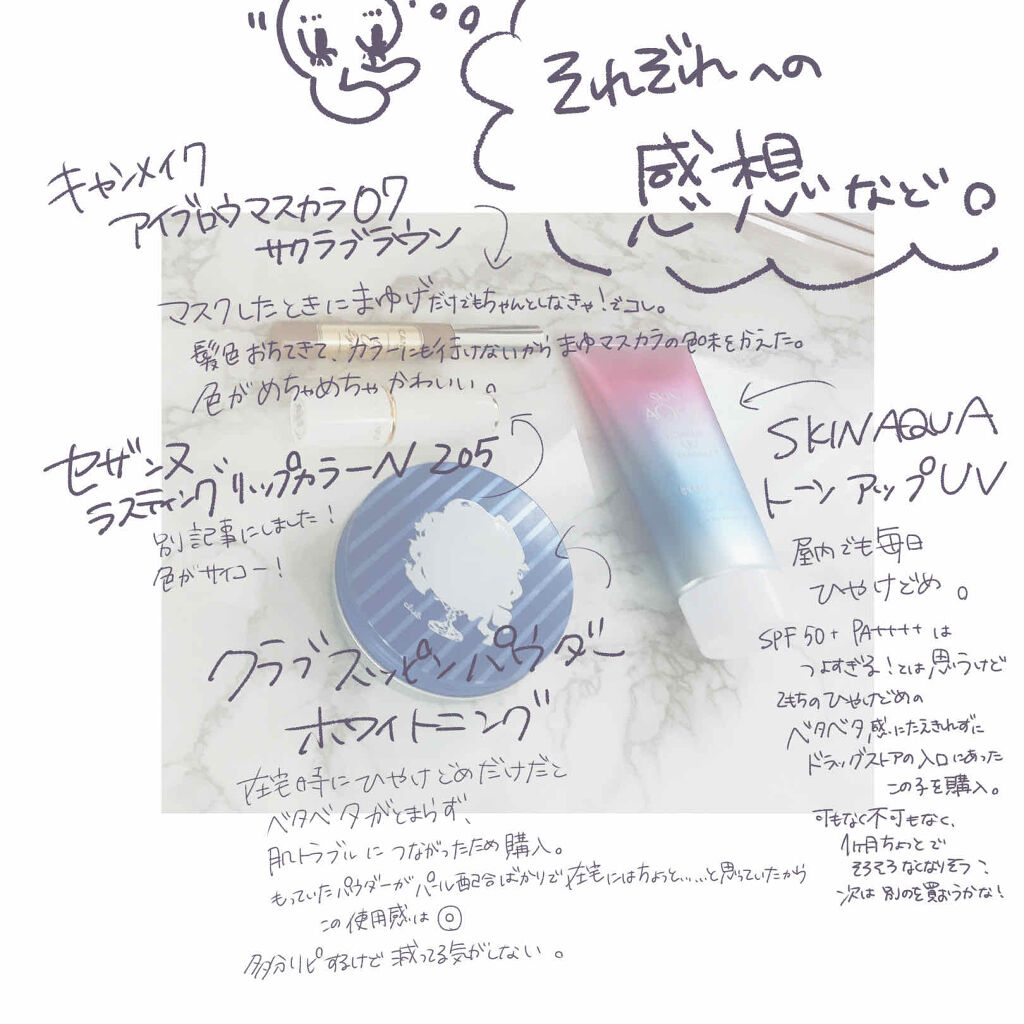 それぞれへの
感想など。
キャンメイク
アイブロウマスカラ07
サクラブラウン
マスクしたときにまゆげだけでもちゃんとしなきゃ!でコレ。
髪色おちてきて、カラーにも行けないからまゆマスカラの色味をかえた。
色がめちゃめちゃかわいい。
セザンヌ
ラスティングリップカラーN 205
別記事にしました!
色がサイコー!
SKIN AQUA
トーンアップUV
屋内でも毎日
ひやけどめ。
SPF50+ PA++++は
つよすぎる!とは思うけど
手もちのひやけどめの
ベタベタ感にたえきれずに
ドラッグストアの入口にあった
この子を購入。
可もなく不可もなく、
1ヶ月ちょっとで
そろそろなくなりそう:
次は別のを買おうかな!
クラブスッピンパウダー
ホワイトニング
在宅時にひやけどめだけだと
ベタベタがとまらず、
肌トラブルにつながったため購入。
もっていたパウダーがパール配合ばかりで在宅にはちょっと……と思っていたから
この使用感は◎
多分リピするけど減ってる気がしない。